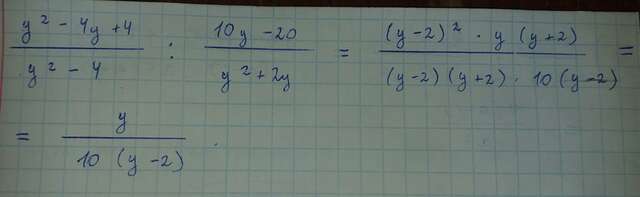 \frac{y² - 4y + 4}{y² - 4} : \frac{10y - 20}{y² + 2y} = \frac{(y-2)² · y (y+2)}{(y-2)(y+2) · 10(y-2)} =
= \frac{y}{10 (y-2)}.